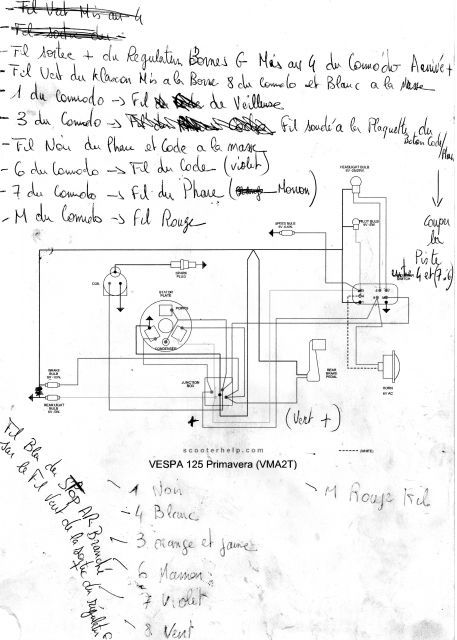 - Fil Vert Mis au 4
- Fil sortie du
- Fil sortie + du Regulateur Bornes G Mis au 4 du Comodo Arrivée +
- Fil Vert du Klaxon Mis a la Borne 8 du comodo et Blanc a la Masse
- 1 du comodo → Fil de Veilleuse
- 3 du Comodo → Fil soudé a la Plaquette du
Boton Code/Phare
- Fil Noir du Phare et Code a la masse
- 6 du Comodo → Fil du Code (violet)
- 7 du Comodo → Fil du Phare (Marron)
- M du Comodo → Fil Rouge
Couper
la
Piste
4 et (7.6)
HEADLIGHT BULB
SPEEDO BULB
PILOT BULB
SPARK
PLUG
COIL
STATOR
PLATE
POINTS
CONDENSER
SWITCH
BRAKE
BULB
REAR LIGHT
BULB
JUNCTION
BOX
REAR
BRAKE
PEDAL
HORN
6V AC
+
(Vert +)
scooterhelp.com
(WHITE)
VESPA 125 Primavera (VMA2T)
Fil Bleu du Stop AR Branché
sur le Fil Vert de la sortie du régulateur
- 1 Noir
- 4 Blanc
- 3 orange et jaune
6 Marron
7 Violet
8 Vert
- M Rouge Fil